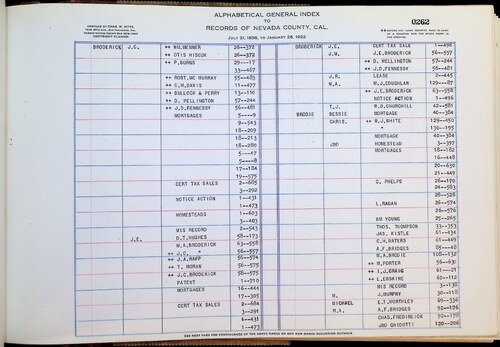 ALPHABETICAL GENERAL INDEX
TO
RECORDS OF NEVADA COUNTY, CAL.
JULY 31, 1856, TO JANUARY 28, 1922
0262
COPYRIGHT CLAIMED
BRODERICK J.C. ++ WM. BENNER 26--372
++ OTIS HISCOK 26--372
++ P. BURNS 29---17
33--467
++ ROBT. MC MURRAY 55--483
++ C.W. DAVIS 11--477
++ BULLOCK & PERRY 13--116
++ D. WELLINGTON 57--244
++ J.D. FENNESSY 56--481
MORTGAGES 5----9
9--543
18--209
18--213
18--280
5---47
5----8
17--184
19--575
CERT TAX SALES 2--685
3--292
NOTICE ACTION 1--431
1--473
HOMESTEADS 1--603
3--403
MIS RECORD 2--543
J.E. D.T. HUGHES 58--173
M.A. BRODERICK 63--558
++ J.C. " 56--557
++ J.A. RAPP 56--574
++ T. MORAN 56--575
++ J.C. BRODERICK 58--575
PATENT 1--710
MORTGAGES 16--444
17--305
CERT TAX SALES 2--684
3--291
1--431
1--473
BRODERICK J.E. CERT TAX SALE 1--498
J.M. ++ J.E. BRODERICK 56--557
++ D. WELLINGTON 57--244
++ J.D. FENNESSY 56--481
J.R. LEASE 2--445
M.A. M.J. COUGHLAN 129---87
++ J.E. BRODERICK 63--558
NOTICE ACTION 1--496
T.J. W.B. CHURCHILL 42--581
BRODIE BESSIE MORTGAGE 40--384
CHRIS. ++ M.J. WHITE 129--450
" 130--195
MORTGAGE 40--384
JNO HOMESTEAD 3--397
MORTGAGES 18--182
16--448
20--650
21--449
C. PHELPS 26--170
24--583
26--528
L. RAGAN 26--574
26--576
WM YOUNG 25--265
THOS. THOMPSON 33--353
JAS. KISTLE 61--434
C.H. BATERS 61--449
A.F. BRIDGES 85--40
M.A. BRODIE 108--132
++ M. PORTER 56--630
++ I.J. CRAIG 61--21
++ L. ERSKINE 60--112
MIS RECORD 3--138
M. J. MURPHY 30--118
MICHAEL E.T. WORTHLEY 69--336
M.A. A.T. BRIDGES 92--176
CHAS. FREDERICK 90--178
JNO GHIDOTTI 120--206